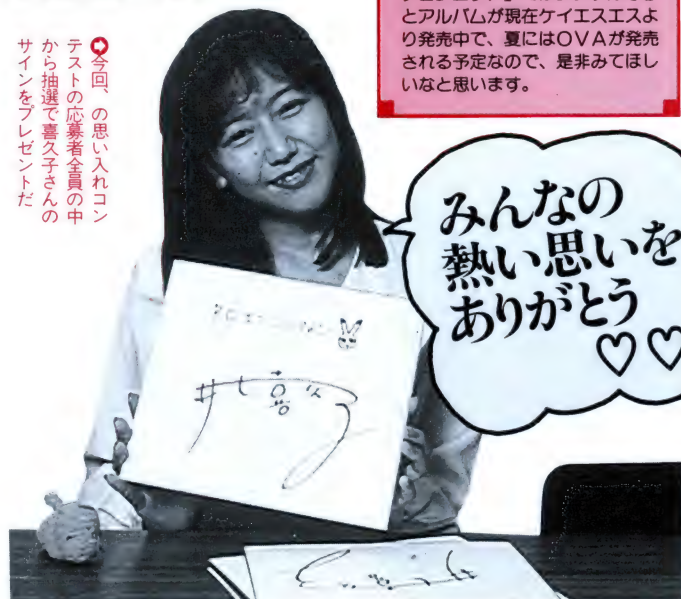 とアルバムが現在ケイエスエスよ
り発売中で、夏にはOVAが発売
される予定なので、是非みてほし
いなと思います。
今回、の思い入れコン
テストの応募者全員の中
から抽選で喜久子さんの
サインをプレゼントだ
みんなの
熱い思いを
ありがとう
♡♡